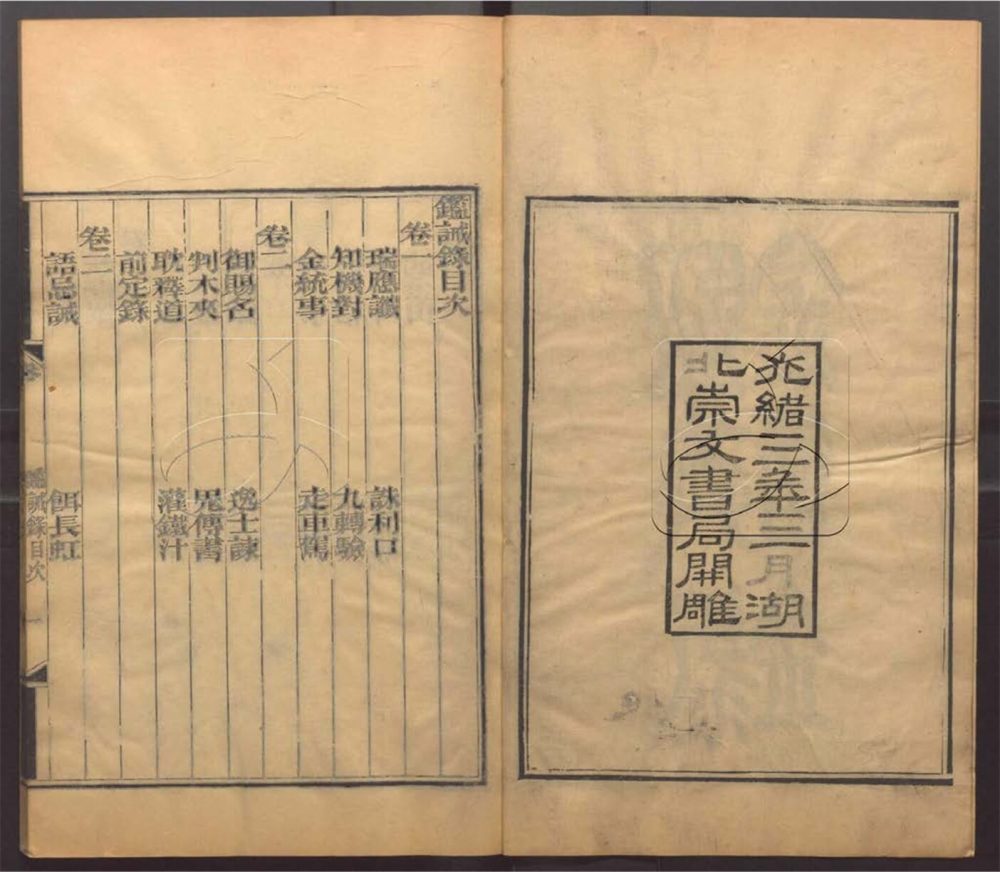 光緒三年三月湖
北崇文書局開雕
鑑誡錄目次
卷一
瑞應讖　誅利口
知機對　九轉驗
金統事　走車駕
卷二
御賜名　逸士諫
判木夾　鬼傳書
耽釋道　灌鐵汁
前定錄
卷三
語忌誡　餌長虹
鑑誡錄目次　一